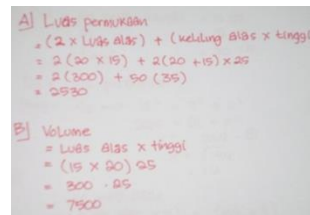 A] Luas permukaan
= (2 x Luas alas) + (keliling alas x tinggi
= 2 (20 x 15) + 2(20 +15) x 25
= 2 (300) + 50 (35)
= 2530
B] Volume
= Luas alas x tinggi
= (15 x 20) 25
= 300 . 25
= 7500